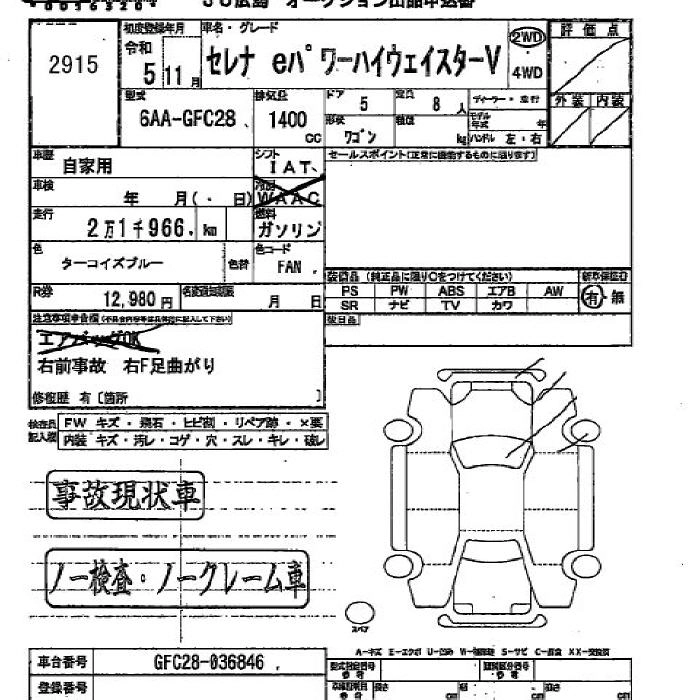 オークション出品申込書
2915
初度登録年月 車名・グレード
令和 5 11月
セレナ eパワーハイウェイスターV
2WD
4WD
評価点
外装 内装
型式 排気量 ドア 定員
6AA-GFC28 1400 CC
5 8 人
形状 積載
ワゴン kg
モデル年式 年
ハンドル 左・右
車歴 自家用
シフト IAT
セールスポイント(正常に機能するものに限ります)
車検 年 月(・ 日)
冷房 WAAC
走行 2万1千966 km
燃料 ガソリン
色 ターコイズブルー 色替
色コード FAN
装備品(純正品に限り○をつけてください)
PS PW ABS エアB AW
SR ナビ TV カワ
有・無
R券 12,980円 月 日
後日品
エアバッグOK
右前事故 右F足曲がり
修復歴 有〔箇所 〕
検査員記入欄
FW キズ・飛石・ヒビ割・リペア跡・×要
内装 キズ・汚レ・コゲ・穴・スレ・キレ・破レ
事故現状車
ノー検査・ノークレーム車
スペア
車台番号 GFC28-036846
登録番号